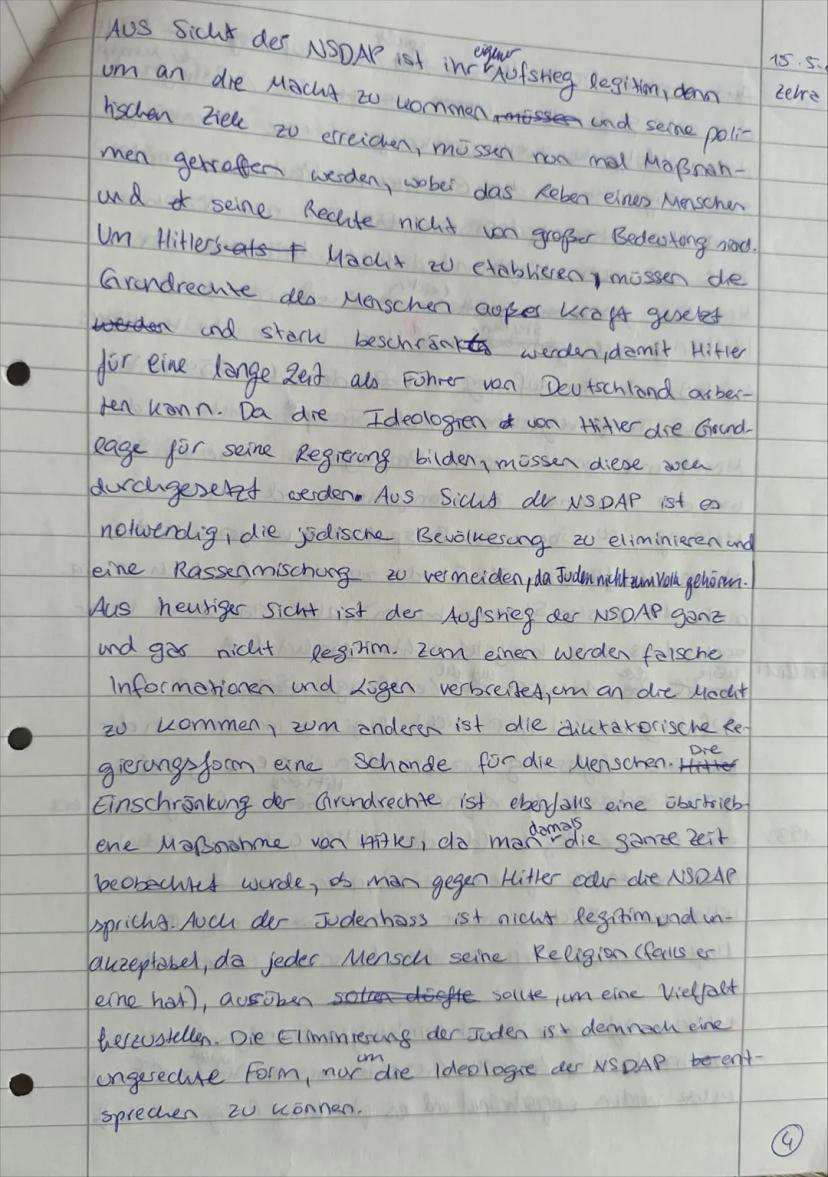 Aus Sicht der NSDAP ist ihr eigener Aufstieg legitim, denn
um an die Macht zu kommen müssen und seine poli-
tischen Ziele zu erreichen, müssen nun mal Maßnah-
men getroffen werden, wobei das Leben eines Menschen
und seine Rechte nicht von großer Bedeutung sind.
Um Hitlers als Macht zu etablieren, müssen die
Grundrechte des Menschen außer Kraft gesetzt
werden und stark beschränkt werden, damit Hitler
für eine lange Zeit als Führer von Deutschland arbei-
ten kann. Da die Ideologien von Hitler die Grund-
lage für seine Regierung bilden, müssen diese auch
durchgesetzt werden. Aus Sicht der NSDAP ist es
notwendig, die jüdische Bevölkerung zu eliminieren und
eine Rassenmischung zu vermeiden, da Juden nicht zum Volk gehören.
Aus heutiger Sicht ist der Aufstieg der NSDAP ganz
und gar nicht legitim. Zum einen werden falsche
Informationen und Lügen verbreitet, um an die Macht
zu kommen, zum anderen ist die diktatorische Re-
gierungsform eine Schande für die Menschen. Hitler Die
Einschränkung der Grundrechte ist ebenfalls eine übertrieb-
ene Maßnahme von Hitler, da man damals die ganze Zeit
beobachtet wurde, ob man gegen Hitler oder die NSDAP
spricht. Auch der Judenhass ist nicht legitim und un-
akzeptabel, da jeder Mensch seine Religion (falls er
eine hat), ausüben sollen dürfte sollte, um eine Vielfalt
herzustellen. Die Eliminierung der Juden ist demnach eine
ungerechte Form, nur um die Ideologie der NSDAP be ent-
sprechen zu können.
15.5.
Zehra
4